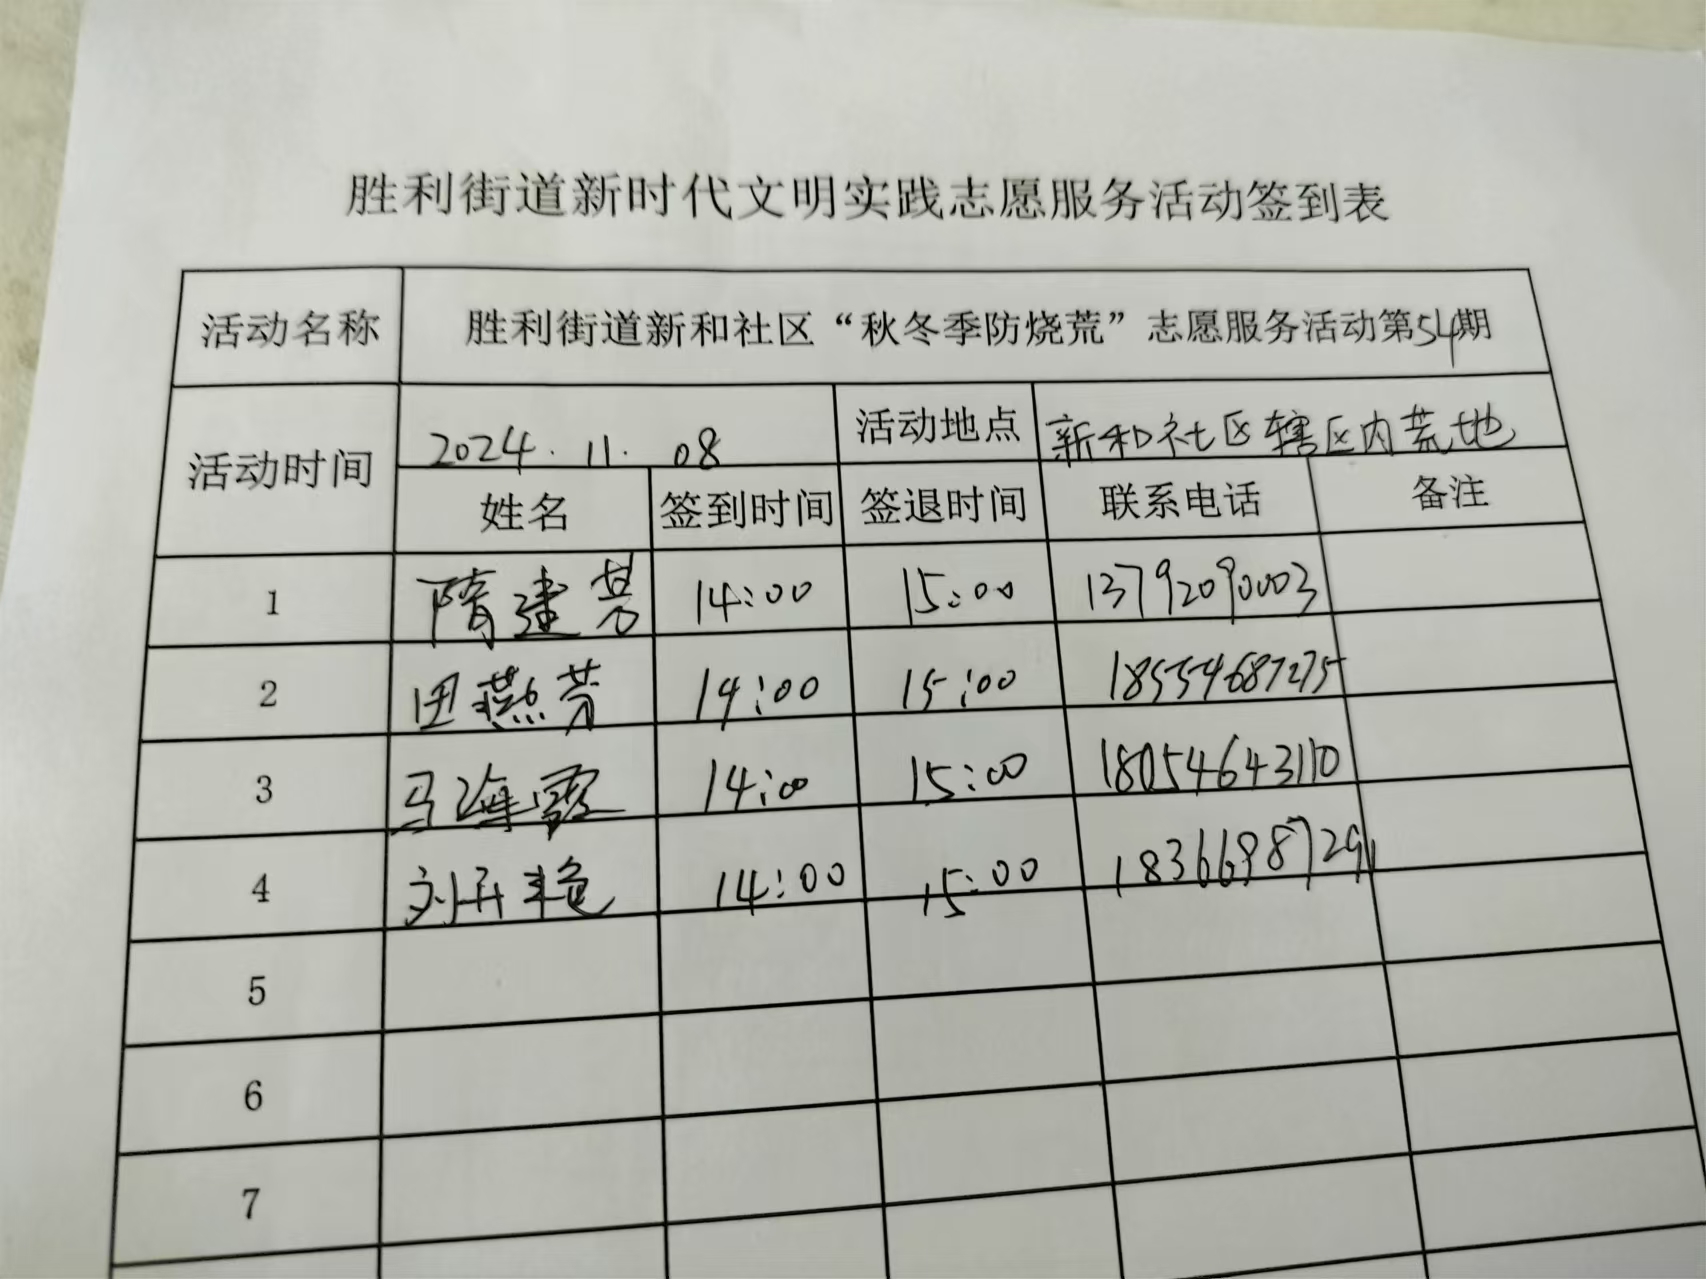 胜利街道新时代文明实践志愿服务活动签到表
活动名称 胜利街道新和社区“秋冬季防烧荒”志愿服务活动第54期
活动时间 2024.11.08 活动地点 新和社区辖区内荒地
姓名 签到时间 签退时间 联系电话 备注
1 隋建芳 14:00 15:00 13792090003
2 田燕芳 14:00 15:00 18554687275
3 马海霞 14:00 15:00 18054643110
4 刘丹艳 14:00 15:00 18366987291
5
6
7